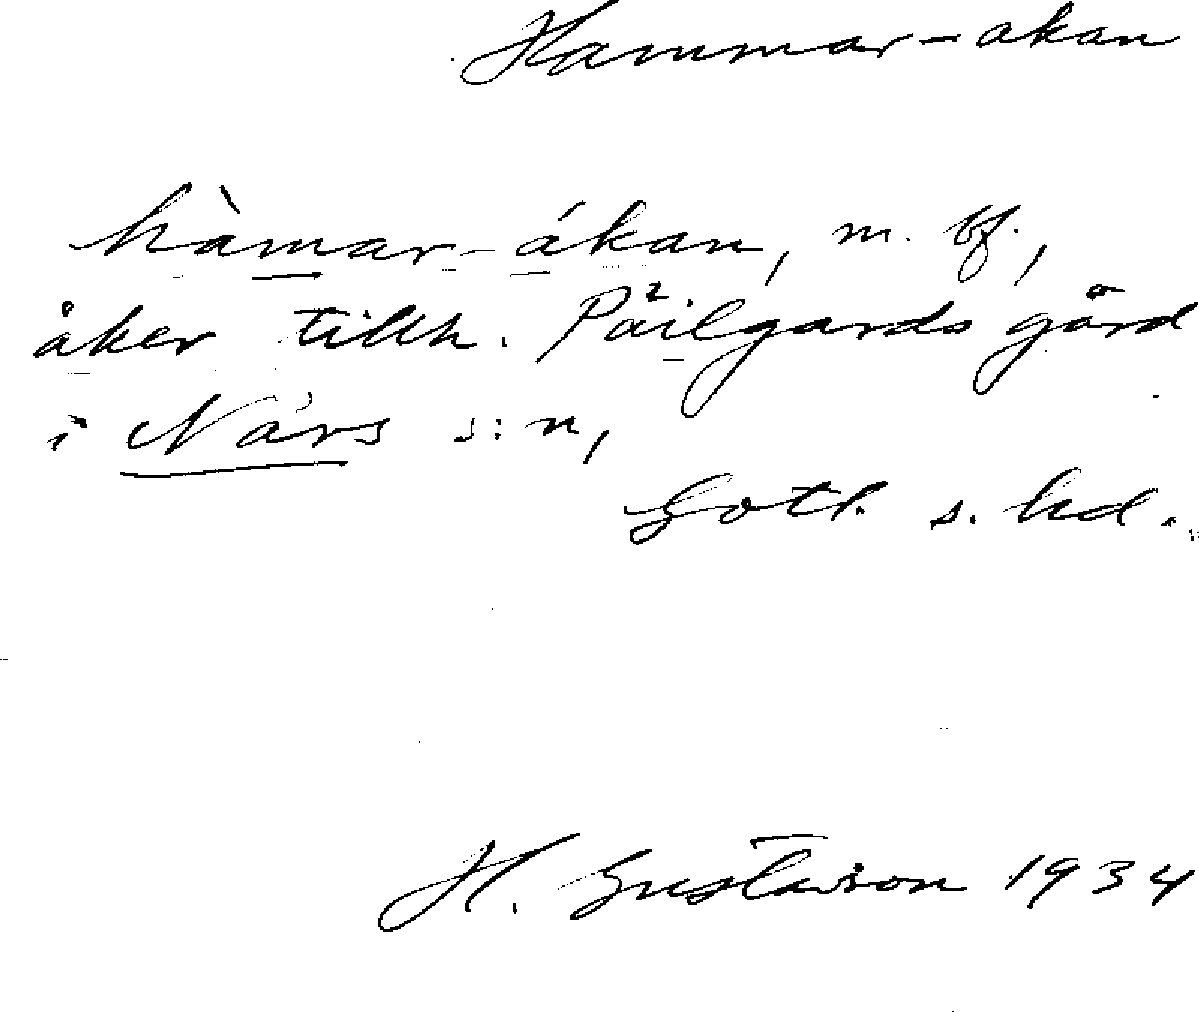 Hammar-akan
hàmar-ákan, m. bf.,
åker tillh. Päilgards gård
i Närs s:n,
Gotl. s. hd.
H. Gustavson 1934